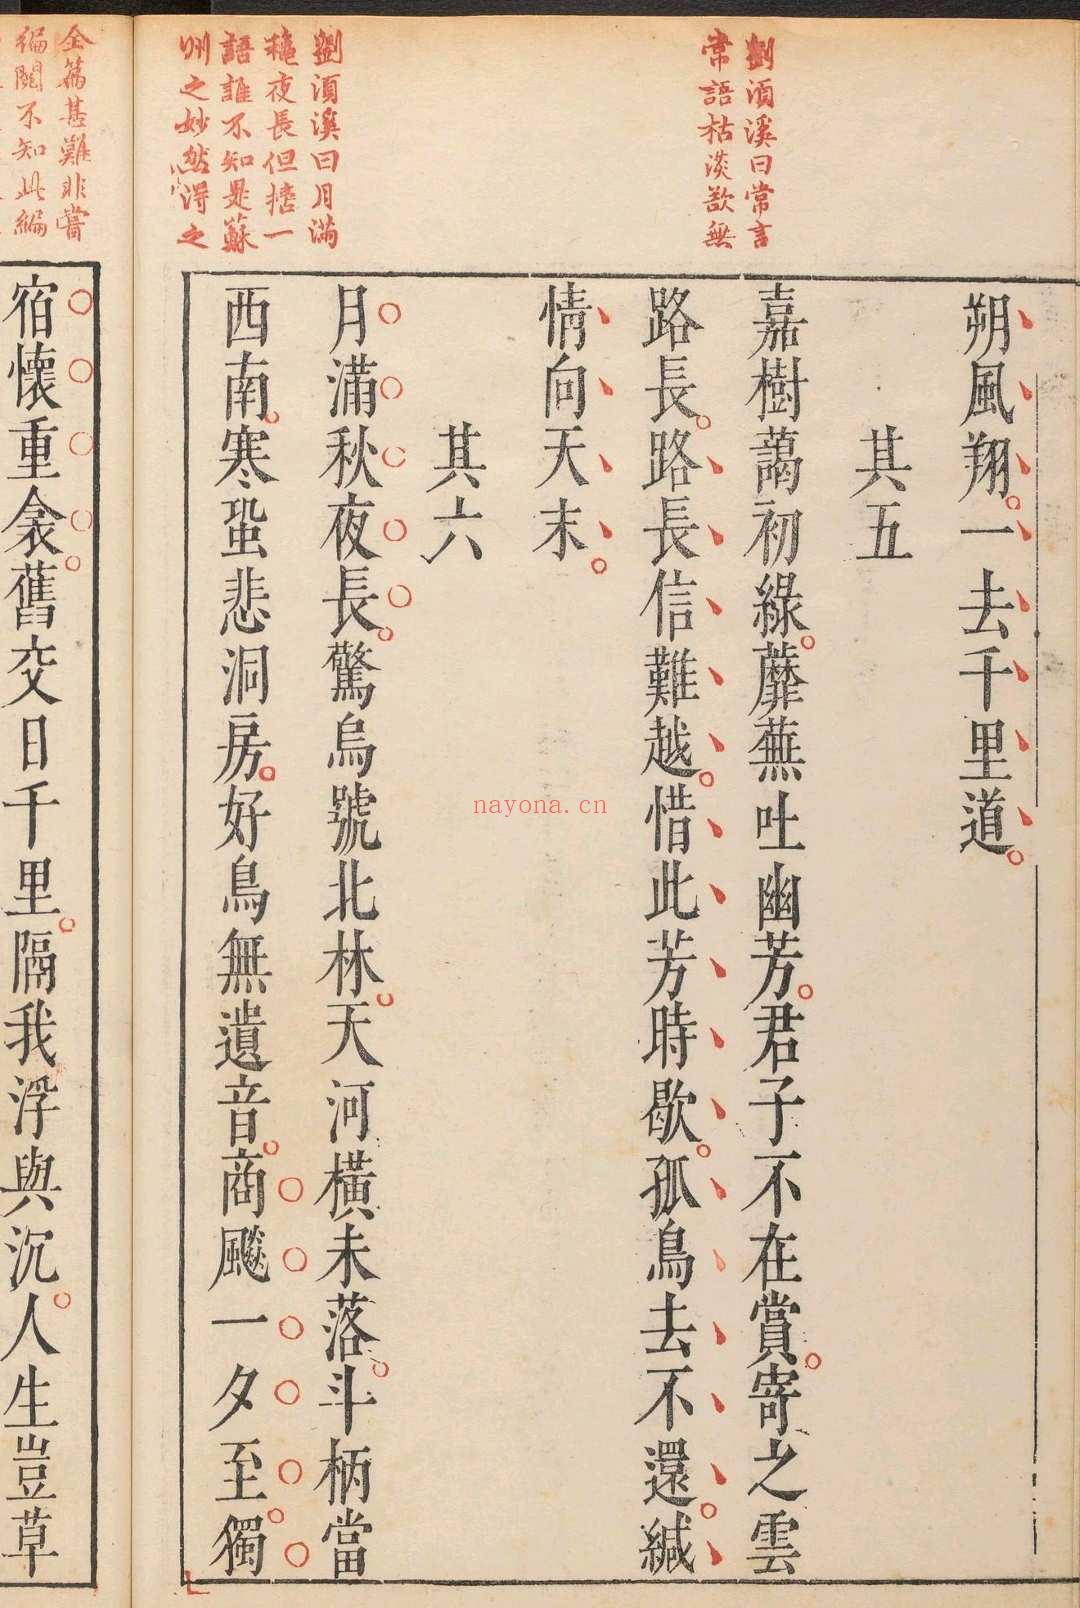 劉須溪曰常言
常語枯淡欲無
劉須溪曰月滿
秋夜長但擡一
語誰不知是蘇
州之妙然得之
全篇甚難非嘗
編閱不知此編
朔風翔一去千里道
其五
嘉樹藹初綠蘼蕪吐幽芳君子不在賞寄之雲
路長路長信難越惜此芳時歇孤鳥去不還緘
情向天末
其六
月滿秋夜長驚烏號北林天河橫未落斗柄當
西南寒蛩悲洞房好鳥無遺音商飈一夕至獨
宿懷重衾舊交日千里隔我浮與沉人生豈草
nayona.cn